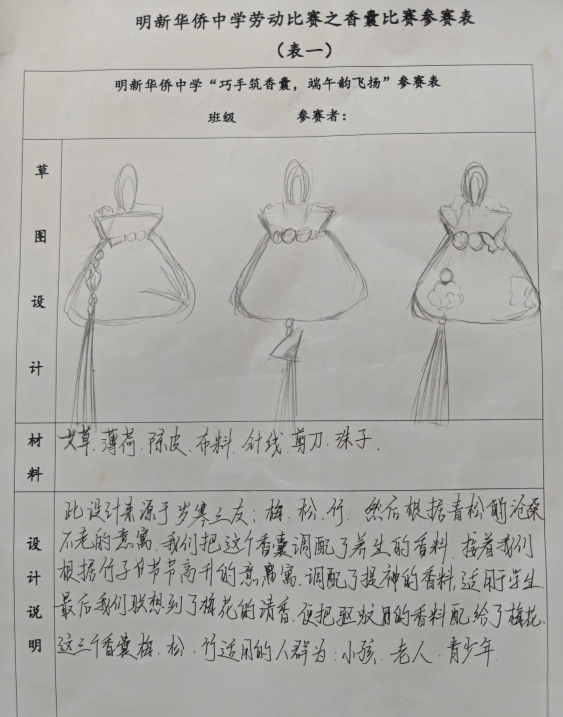 明新华侨中学劳动比赛之香囊比赛参赛表
（表一）
明新华侨中学“巧手筑香囊，端午韵飞扬”参赛表
班级 参赛者：
草图设计
材料
艾草、薄荷、陈皮、布料、针线、剪刀、珠子.
设计说明
此设计来源于岁寒三友；梅、松、竹. 然后根据青松前沧桑
不老的意寓. 我们把这个香囊调配了养生的香料. 接着我们
根据竹子节节高升的意寓. 调配了提神的香料,适用于学生.
最后我们联想到了梅花的清香. 便把驱蚊用的香料配给了梅花.
这三个香囊梅、松、竹适用的人群为：小孩、老人、青少年.